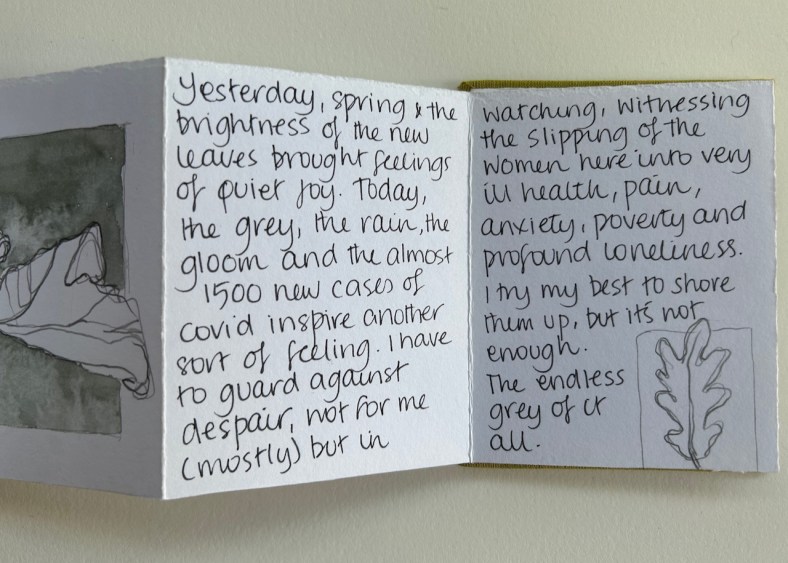 Yesterday, spring & the
brightness of the new
leaves brought feelings
of quiet joy. Today,
the grey, the rain, the
gloom and the almost
1500 new cases of
covid inspire another
sort of feeling. I have
to guard against
despair, not for me
(mostly) but in
watching, witnessing
the slipping of the
women here into very
ill health, pain,
anxiety, poverty and
profound loneliness.
I try my best to shore
them up, but it's not
enough.
The endless
grey of it
all.